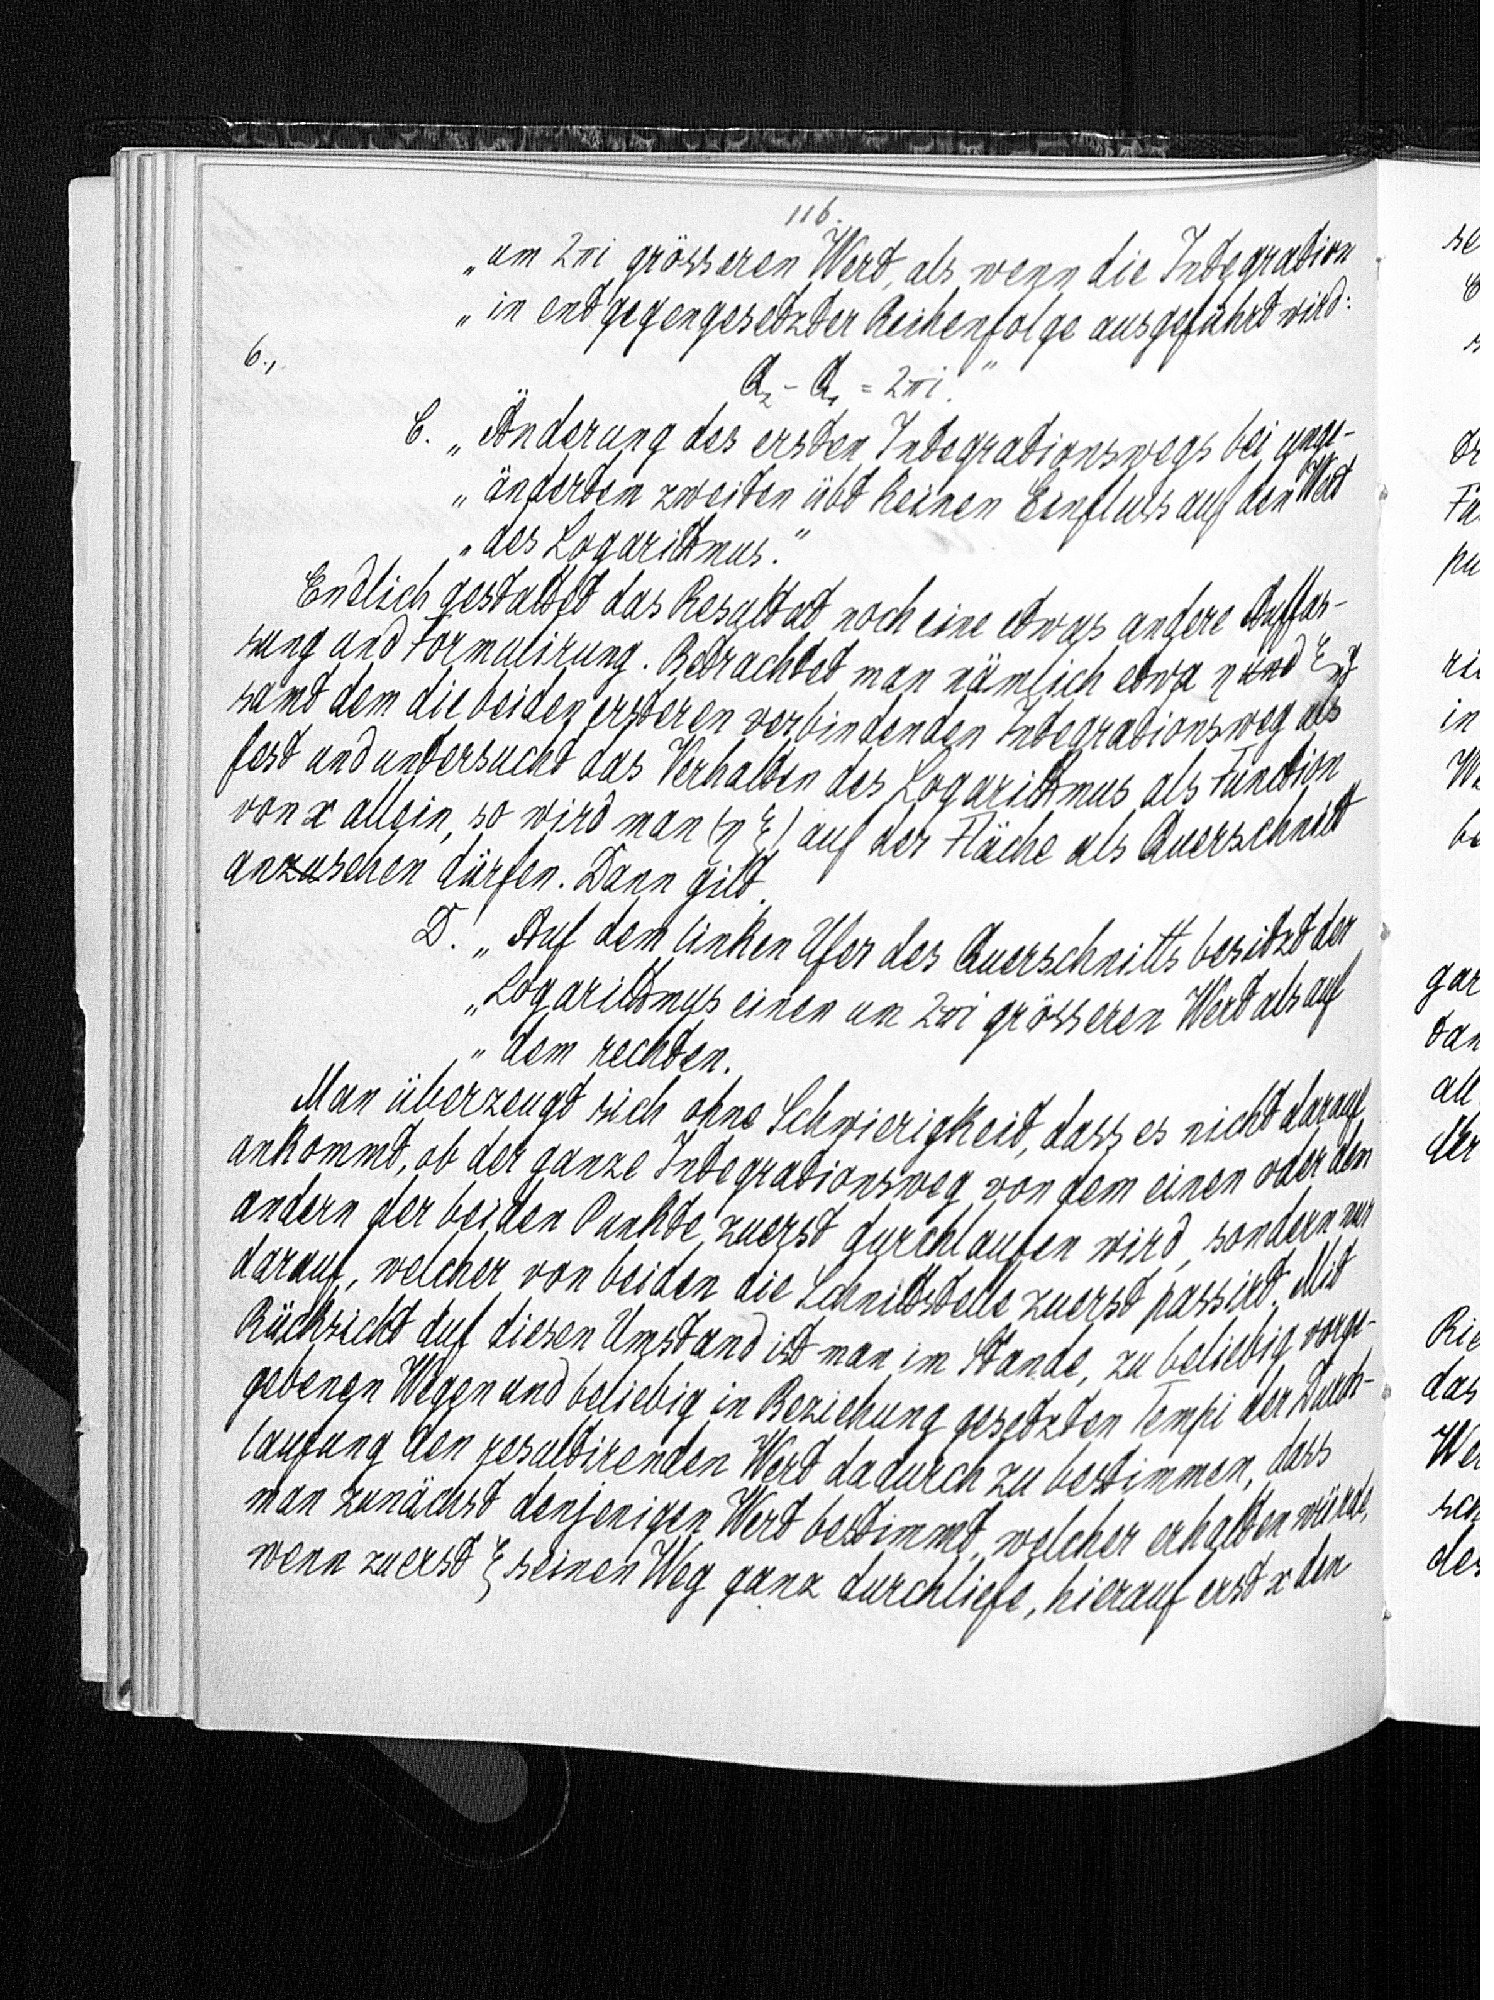 116.
„um 2πi grösseren Wert, als wenn die Integration
„in entgegengesetzter Reihenfolge ausgeführt wird:
6.,
Q₂ - Q₁ = 2πi."
C. „Änderung des ersten Integrationswegs bei unge-
„änderten zweiten übt keinen Einfluss auf den Wert
„des Logaritmus."
Endlich gestattet das Resultat noch eine etwas andere Auffas-
sung und Formulirung. Betrachtet man nämlich etwa η und ξ
samt dem die beiden ersteren verbindenden Integrationsweg als
fest und untersucht das Verhalten des Logaritmus als Function
von x allein, so wird man (η ξ) auf der Fläche als Querschnitt
ansehen dürfen. Dann gilt.
D. „Auf dem linken Ufer des Querschnitts besitzt der
„Logaritmus einen um 2πi grösseren Wert als auf
„dem rechten.
Man überzeugt sich ohne Schwierigkeit, dass es nicht darauf
ankommt, ob der ganze Integrationsweg von dem einen oder dem
andern der beiden Punkte zuerst durchlaufen wird, sondern nur
darauf, welcher von beiden die Schnittstelle zuerst passirt. Mit
Rücksicht auf diesen Umstand ist man im Stande, zu beliebig vorge-
gebenen Wegen und beliebig in Beziehung gesetzten Tempi der Durch-
laufung den resultirenden Wert dadurch zu bestimmen, dass
man zunächst denjenigen Wert bestimmt, welcher erhalten würde,
wenn zuerst ξ seinen Weg ganz durchliefe, hierauf erst x den